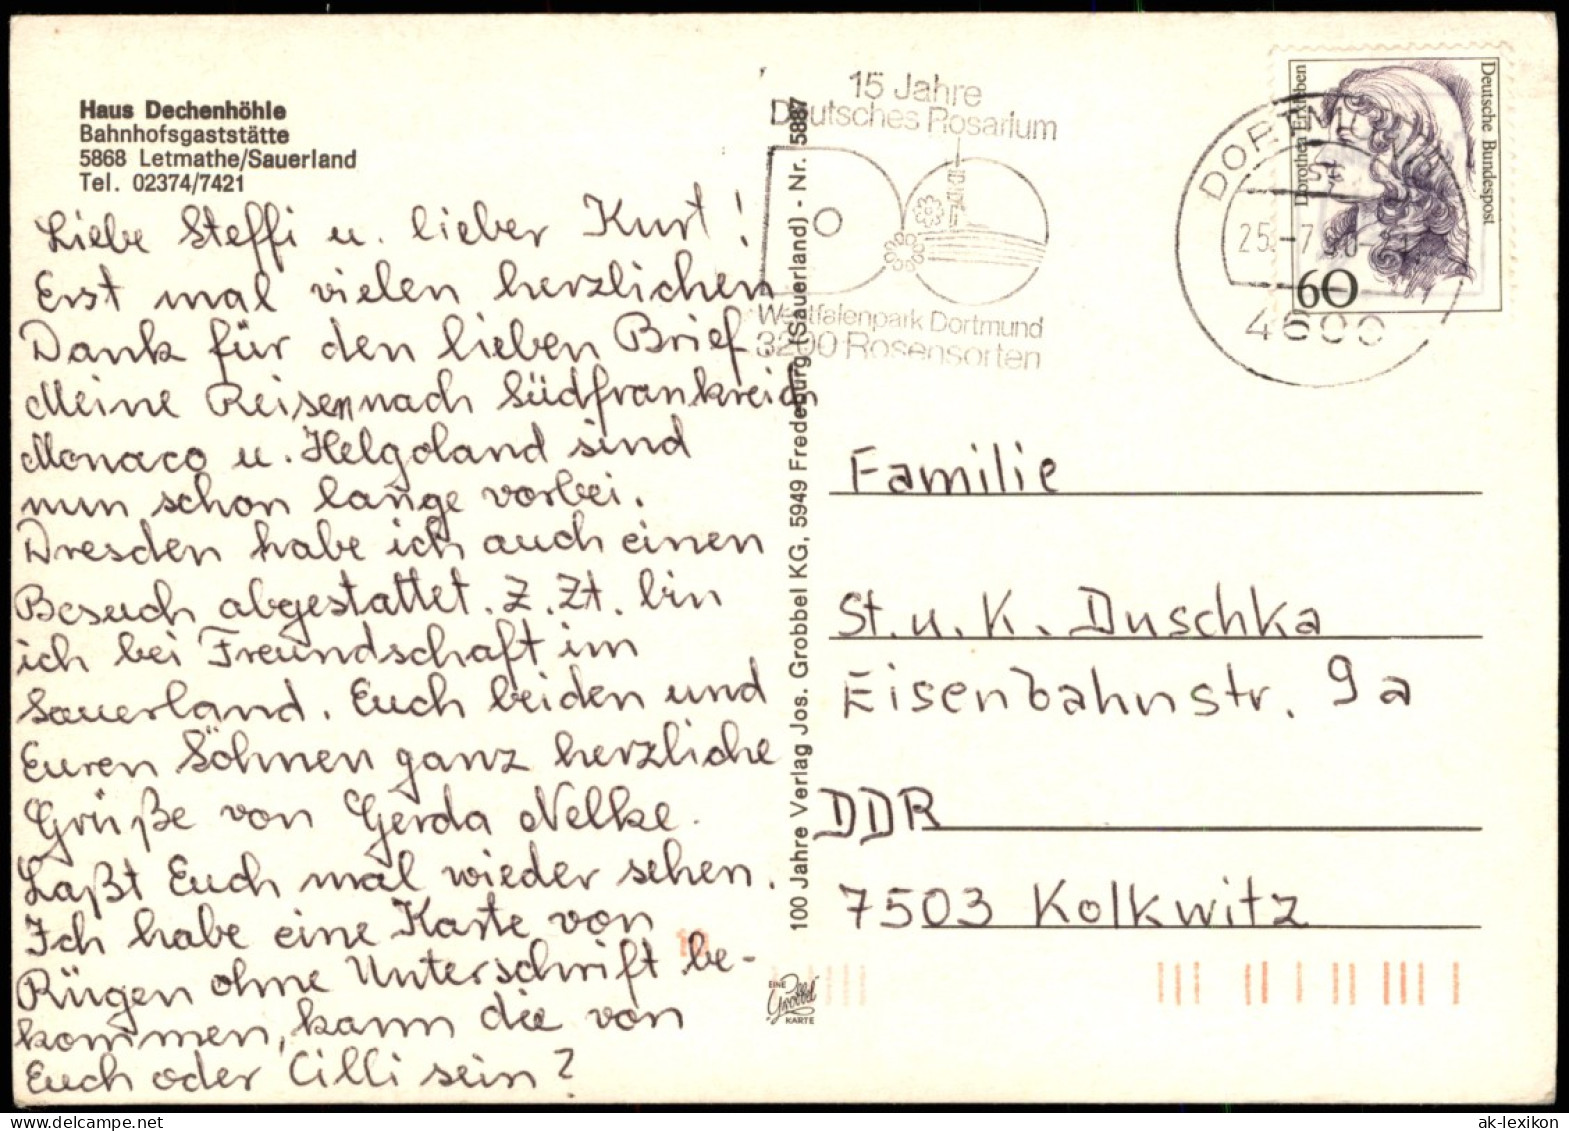 Haus Dechenhöhle
Bahnhofsgaststätte
5868 Letmathe/Sauerland
Tel. 02374/7421
Liebe Steffi u. lieber Kurt!
Erst mal vielen herzlichen
Dank für den lieben Brief.
Meine Reisen nach Südfrankreich
Monaco u. Helgoland sind
nun schon lange vorbei.
Dresden habe ich auch einen
Besuch abgestattet. Z. Zt. bin
ich bei Freundschaft im
Sauerland. Euch beiden und
Euren Söhnen ganz herzliche
Grüße von Gerda Nelke.
Laßt Euch mal wieder sehen.
Ich habe eine Karte von
Rügen ohne Unterschrift be-
kommen, kann die von
Euch oder Cilli sein?
100 Jahre Verlag Jos. Grobbel KG, 5949 Fredeburg (Sauerland) - Nr. 5887
EINE
Grobbel
KARTE
15 Jahre
Deutsches Rosarium
Westfalenpark Dortmund
3200 Rosensorten
DORTMUND
25.-7.
4600
Dorothea Erxleben
Deutsche Bundespost
60
Familie
St. u. K. Duschka
Eisenbahnstr. 9a
DDR
7503 Kolkwitz
ak-lexikon